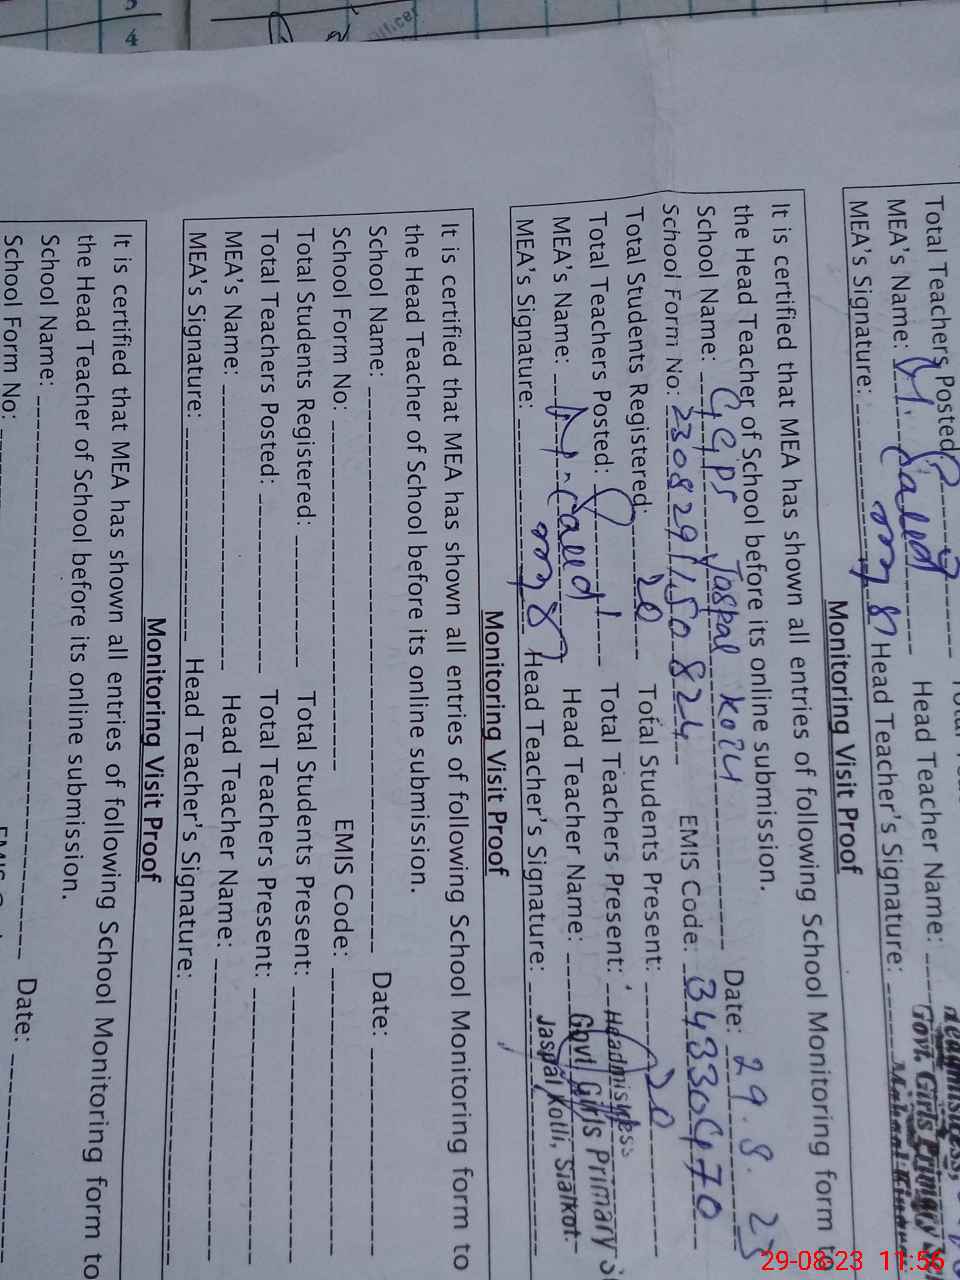 Office
Total Teachers Posted:
MEA's Name: M. Saeed Head Teacher Name:
MEA's Signature: Head Teacher's Signature:
Headmistress,
Govt. Girls Primary
Monitoring Visit Proof
It is certified that MEA has shown all entries of following School Monitoring form to
the Head Teacher of School before its online submission.
School Name: GGPS Jaspal Kolli Date: 29.8.23
School Form No: 230829150824 EMIS Code: 34330470
Total Students Registered: 20 Total Students Present: 20
Total Teachers Posted: 1 Total Teachers Present:
MEA's Name: M. Saeed Head Teacher Name:
MEA's Signature: Head Teacher's Signature:
Headmistress
Govt Girls Primary
Jaspal Kolli, Sialkot.
Monitoring Visit Proof
It is certified that MEA has shown all entries of following School Monitoring form to
the Head Teacher of School before its online submission.
School Name: Date:
School Form No: EMIS Code:
Total Students Registered: Total Students Present:
Total Teachers Posted: Total Teachers Present:
MEA's Name: Head Teacher Name:
MEA's Signature: Head Teacher's Signature:
Monitoring Visit Proof
It is certified that MEA has shown all entries of following School Monitoring form to
the Head Teacher of School before its online submission.
School Name: Date:
School Form No:
29-08-23 11:56